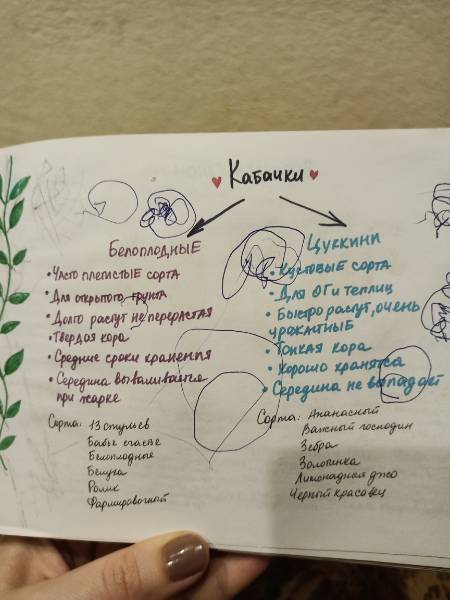 Кабачки
Белоплодные
• Часто плетистые сорта
• Для открытого грунта
• Долго растут не перерастая
• Твердая кора
• Средние сроки хранения
• Середина вываливается
при жарке
Сорта: 13 стульев
Бабье счастье
Белоплодные
Белуха
Ролик
Фармировочный
Цуккини
• Кустовые сорта
• Для ОГ и теплиц
• Быстро растут, очень
урожайные
• Тонкая кора
• Хорошо хранятся
• Середина не выпадает
Сорта: Ананасный
Важный господин
Зебра
Золотинка
Лимонадный джо
Черный красавец